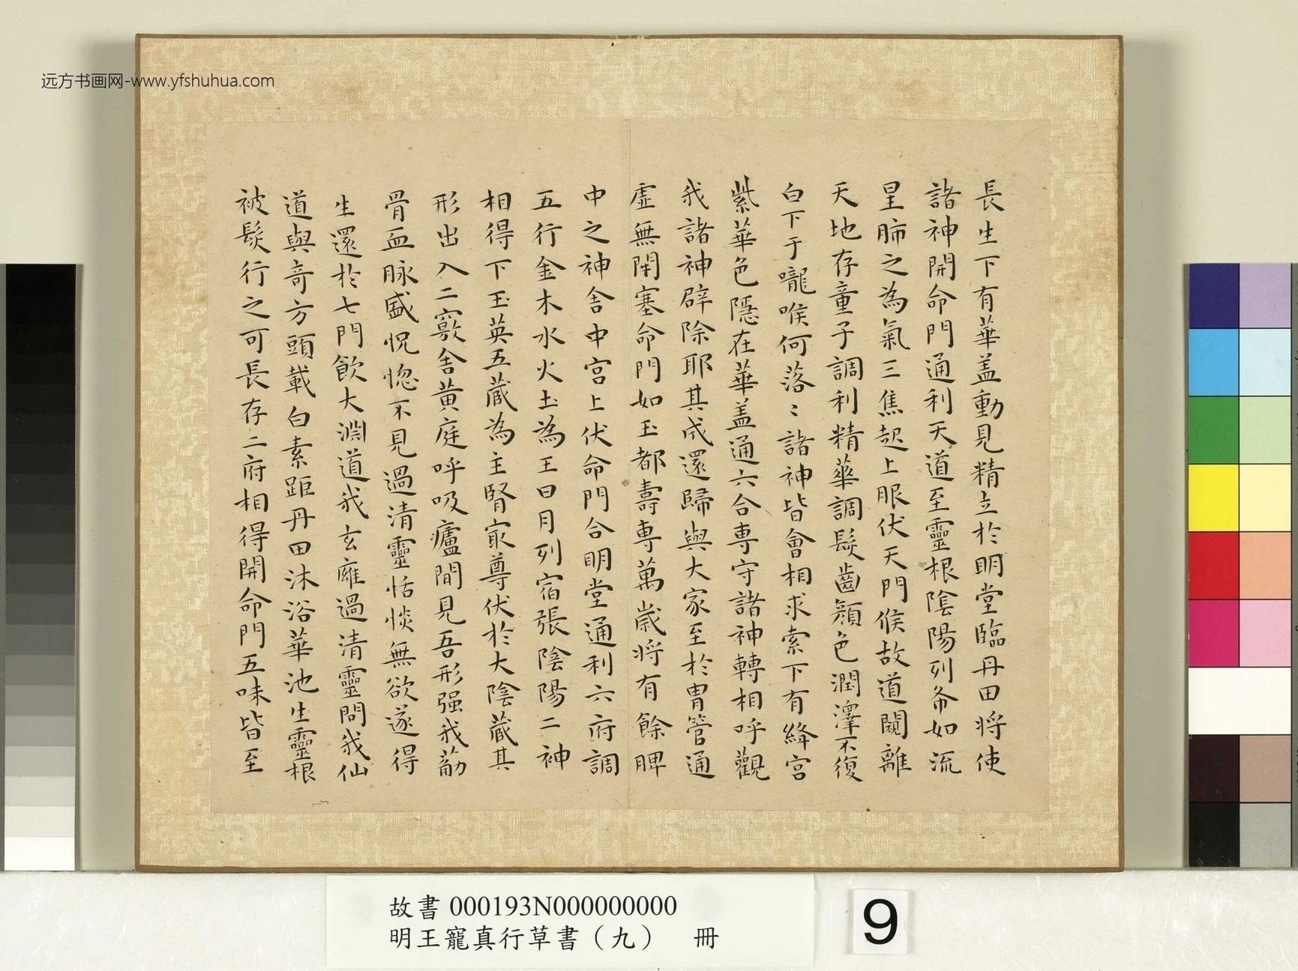 远方书画网-www.yfshuhua.com
長生下有華盖動見精立於明堂臨丹田將使
諸神開命門通利天道至靈根陰陽列布如流
星肺之為氣三焦起上服伏天門候故道闚離
天地存童子調利精華調髮齒顏色潤澤不復
白下于嚨喉何落〻諸神皆會相求索下有絳宮
紫華色隱在華盖通六合專守諸神轉相呼觀
我諸神辟除耶其成還歸與大家至於胃管通
虛無閉塞命門如玉都壽專萬歲將有餘脾
中之神舍中宮上伏命門合明堂通利六府調
五行金木水火土為王日月列宿張陰陽二神
相得下玉英五藏為主腎㝡尊伏於大陰藏其
形出入二竅舍黄庭呼吸廬間見吾形强我葪
骨血脉盛怳惚不見過清靈恬惔無欲遂得
生還於七門飲大淵道我玄雍過清靈問我仙
道與奇方頭載白素距丹田沐浴華池生靈根
被髮行之可長存二府相得開命門五味皆至
故書000193N000000000
明王寵真行草書（九） 冊
9